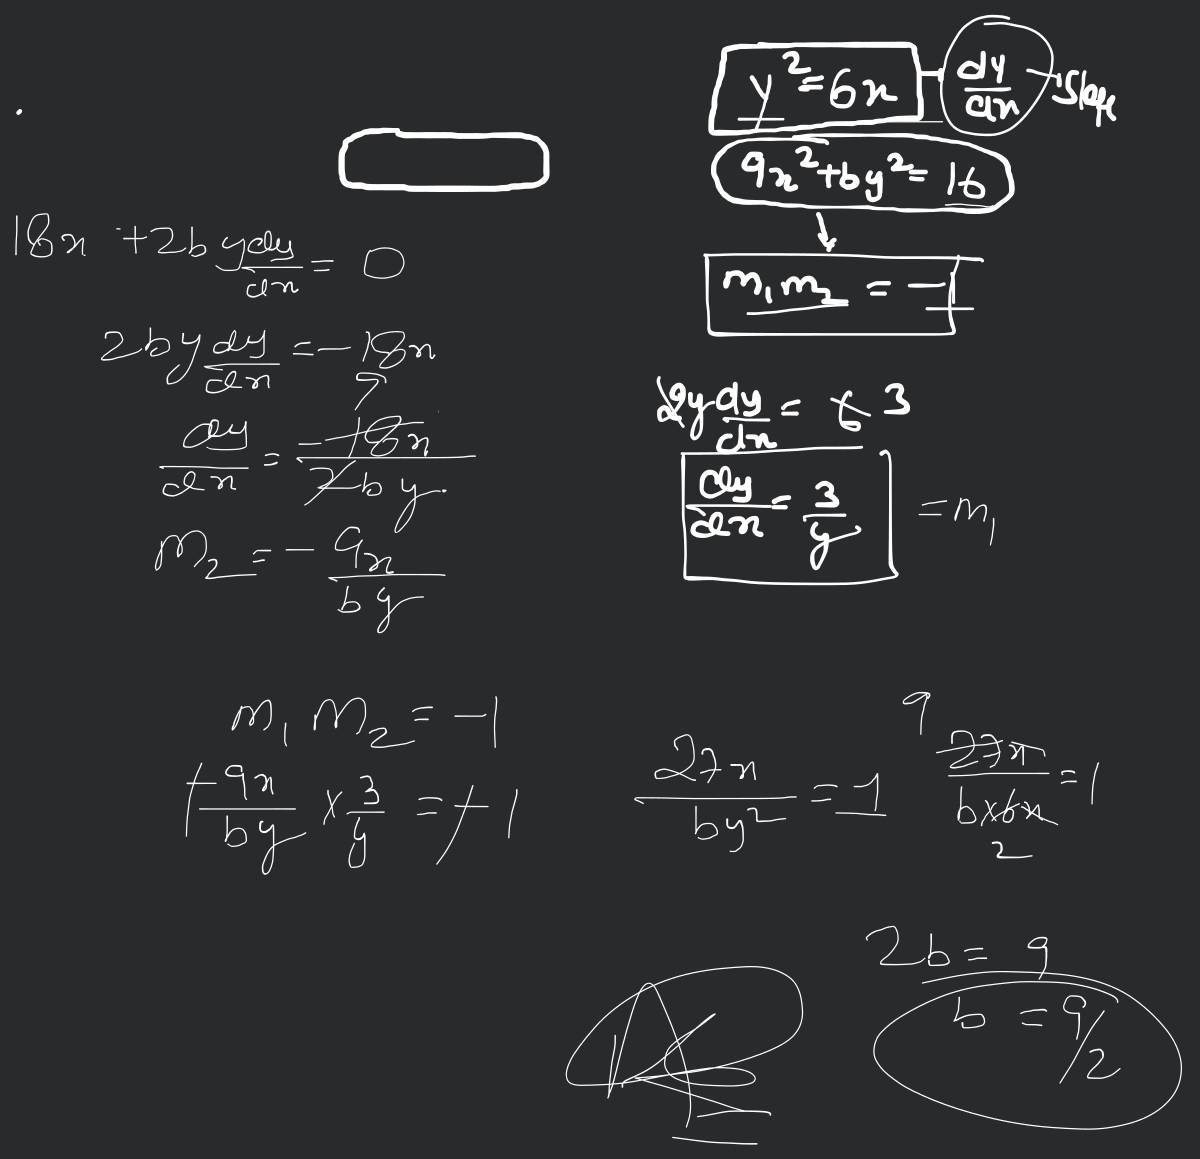 y² = 6x – dy/dx → Slope
9x² + by² = 16
m₁m₂ = -1
18x + 2by dy/dx = 0
2by dy/dx = -18x
9
dy/dx = -18x/2by
m₂ = -9x/by
2y dy/dx = 6 3
dy/dx = 3/y = m₁
m₁ m₂ = -1
-9x/by × 3/y = -1
27x/by² = 1
9
27x/b×6x = 1
2
2b = 9
b = 9/2